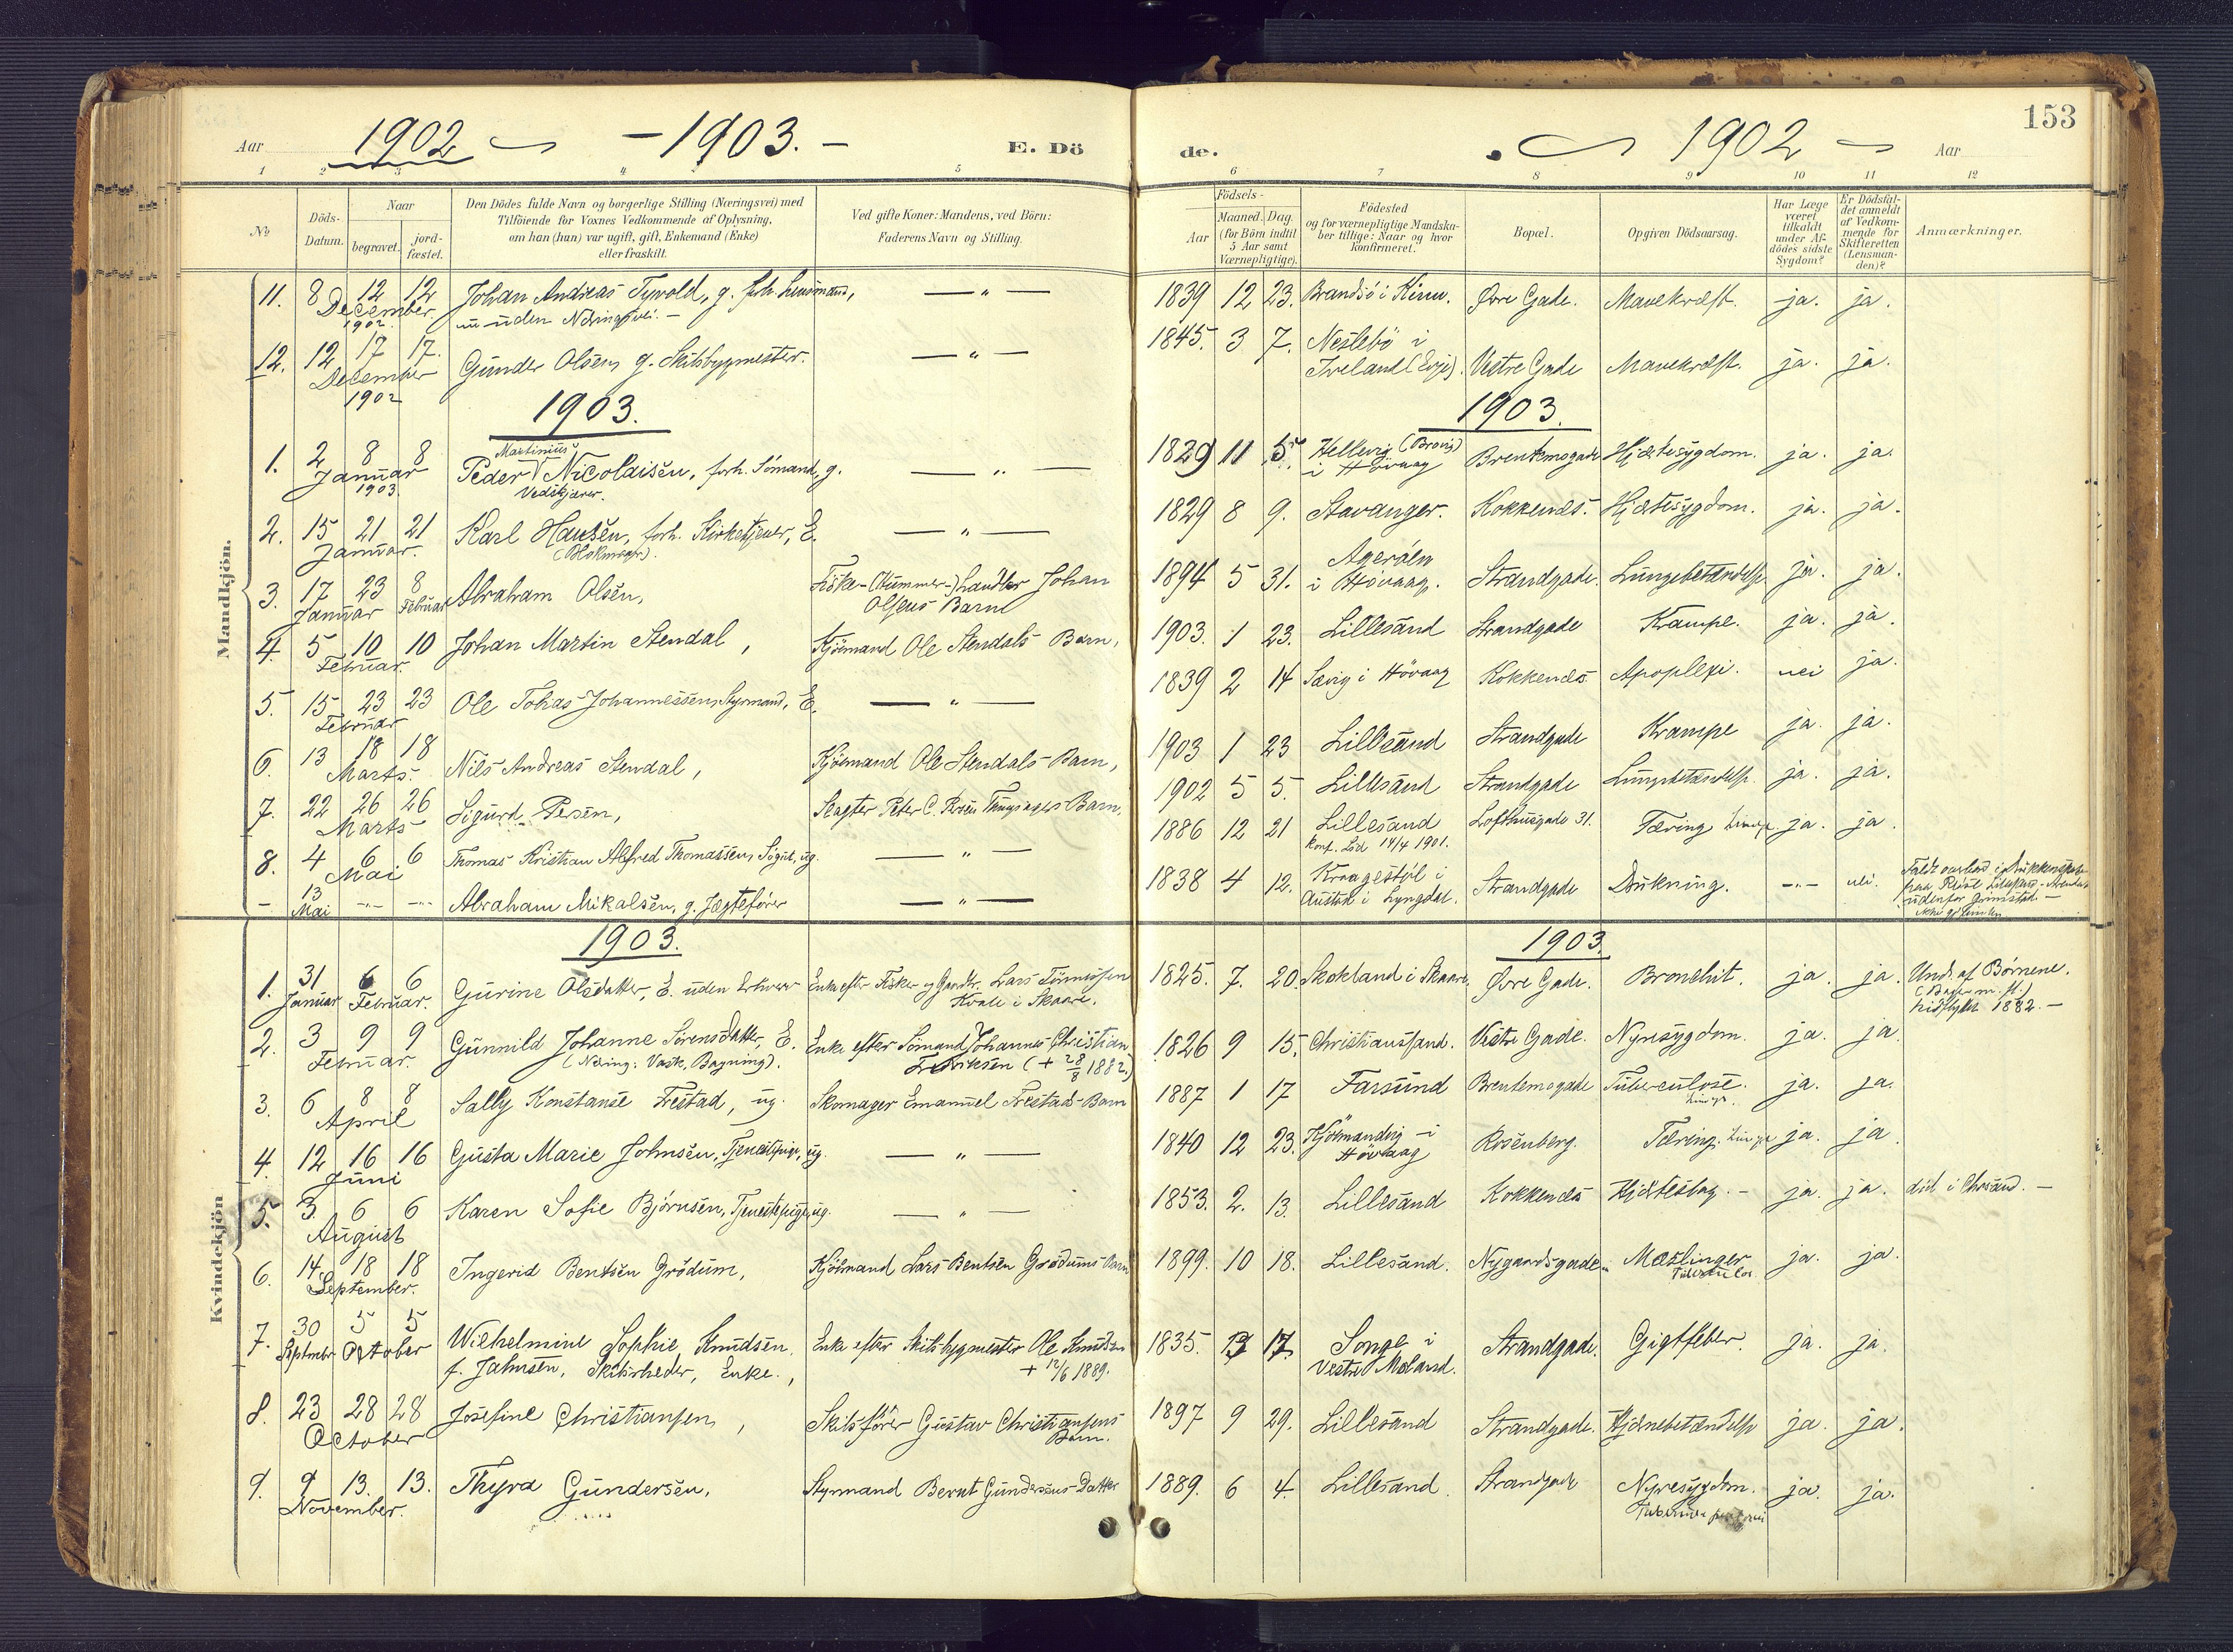 153
Aar 1902 - 1903. -
E. Dö de.
1902 Aar
1 2 3 4 5 6 7 8 9 10 11 12
No
Döds-Datum.
Naar
begravet.
jord-fæstet.
Den Dödes fulde Navn og borgerlige Stilling (Næringsvei) med
Tilföiende for Voxnes Vedkommende af Oplysning,
om han (hun) var ugift, gift, Enkemand (Enke)
eller fraskilt.
Ved gifte Koner: Mandens, ved Börn:
Faderens Navn og Stilling.
Födsels-
Aar
Maaned. Dag.
(for Börn indtil
5 Aar samt
Værnepligtige).
Födested
og for værnepligtige Mandska-
ber tillige: Naar og hvor
konfirmeret.
Bopæl.
Opgiven Dödsaarsag.
Har Læge
været
tilkaldt
under Af-
dødes sidste
Sygdom?
Er Dödsfal-
det anmeldt
af Vedkom-
mende for
Skifteretten
(Lensman-
den)?
Anmærkninger.
Mandkjön.
11. 8 12 12 Johan Andreas Tyvold, g. forh. Lensmand, — " — 1839 12 23. Brandsö i Kinn. Øvre Gade. Mavekræft. ja. ja.
December 1902. nu uden Næringsvei. —
12. 12 17 17. Gunder Olsen, g. Skibsbygmester. — " — 1845. 3 7. Neslebö i
December 1902 Iveland (Evje). Vestre Gade Mavekræft. ja. ja.
1903. 1903.
1. 2 8 8 Peder Martinius Nicolaisen, forh. Sömand, g. — " — 1829 11 5. Hellevig (Brovig) i Hövaag Brentemogade Hjertesygdom. ja. ja.
Januar 1903. Vedskjærer.
2. 15 21 21 Karl Hansen, forh. Kirketjener, E. — " — 1829 8 9. Stavanger. Kokkenes. Hjertesygdom. ja. ja.
Januar.
3. 17 23 8 Abraham Olsen, Fiske-(Hummer-)handler Johan Olsens Barn 1894 5 31. Agerøen i Hövaag. Strandgade. Lungebetændelse. ja. ja.
Januar Februar
4. 5 10 10 Johan Martin Stendal, Kjömand Ole Stendals Barn, 1903. 1 23. Lillesand Strandgade Krampe. ja. ja.
Februar.
5. 15 23 23 Ole Tobias Johannessen, Styrmand, E. — " — 1839 2 14 Sævig i Hövaag Kokkenes Apoplexi. nei ja.
Februar
6. 13 18 18 Nils Andreas Stendal, Kjömand Ole Stendals Barn, 1903 1 23 Lillesand Strandgade Krampe ja. ja.
Marts.
7. 22 26 26 Sigurd Persen, Slagter Peter C. Barn. 1902 5 5. Lillesand Strandgade Lungebetændelse. ja. ja.
Marts
8. 4 6 6 Thomas Kristian Alfred Thomassen, Sögut, ug. — " — 1886 12 21 Lillesand Lofthusgade 31. Tæring Lunge ja. ja.
Mai konf. Lsd 14/4 1901.
- 13 -"- -"- Abraham Mikalsen, g. Jægtefører — " — 1838 4 12. Kraagestøl i Strandgade Drukning. -"- nei. Faldt overbord i Drukkenskab
Mai Austad i Lyngdal. paa Reise Lillesand - Arendal
udenfor Grimstad. —
Kvindekjön
1903. 1903.
1. 31 6 6 Gurine Olsdatter, E. uden Erhverv Enke efter Fisker og Gaardbr. Lars Tönnesen 1825. 7. 20. Stokland i Skaare. Øvre Gade. Bronchit. ja. ja. Und. af Børnene.
Januar Februar. Kvale i Skaare. (Bager m. fl.)
hidflyttet 1882. —
2. 3 9 9 Gunnild Johanne Sörensdatter, E. Enke efter Sömand Johannes Christian 1826 9 15. Christianssand. Vestre Gade. Nyresygdom. ja. ja
Februar. (Næring: Vask, Bagning). Eriksen (+ 28/8 1882.)
3. 6 8 8 Sally Konstanse Frestad, ug. Skomager Emanuel Frestads Barn 1887 1 17 Farsund Brentemogade Tuberculose. ja. ja.
April Lunge.
4. 12 16 16 Gusta Marie Johnsen, Tjenestepige, ug. — " — 1840 12 23. Kjömandvig i Hövaag Rosenberg. Tæring. Lunge ja. ja
Juni
5. 3. 6 6 Karen Sofie Björnsen, Tjenestepige, ug. — " — 1853. 2. 13. Lillesand Kokkenes Hjerteslag. — ja. ja. död i Chrsand. —
August
6. 14 18 18 Ingerid Bentsen Grödum, Kjömand Lars Bentsen Grödums Barn 1899. 10 18. Lillesand. Nygaardsgade. Mæslinger ja. ja.
September. Tuberculos
7. 30 5 5 Wilhelmine Sophie Knudsen, Enke efter Skibsbygmester Ole Knudsen 1835. 12 17. Songe i Strandgade. Gigtfeber. ja. ja.
September October f. Jahnsen, Skibsrheder, Enke., + 12/6 1889. Vestre Moland.
8. 23 28 28 Josefine Christiansen, Skibsfører Gustav Christiansens Barn. 1897 9 29. Lillesand Strandgade. Hjernebetændelse ja. ja.
October
9. 9 13. 13. Thyra Gundersen, Styrmand Bernt Gundersens Datter 1889. 6 4. Lillesand. Strandgade Nyresygdom. ja. ja.
November.